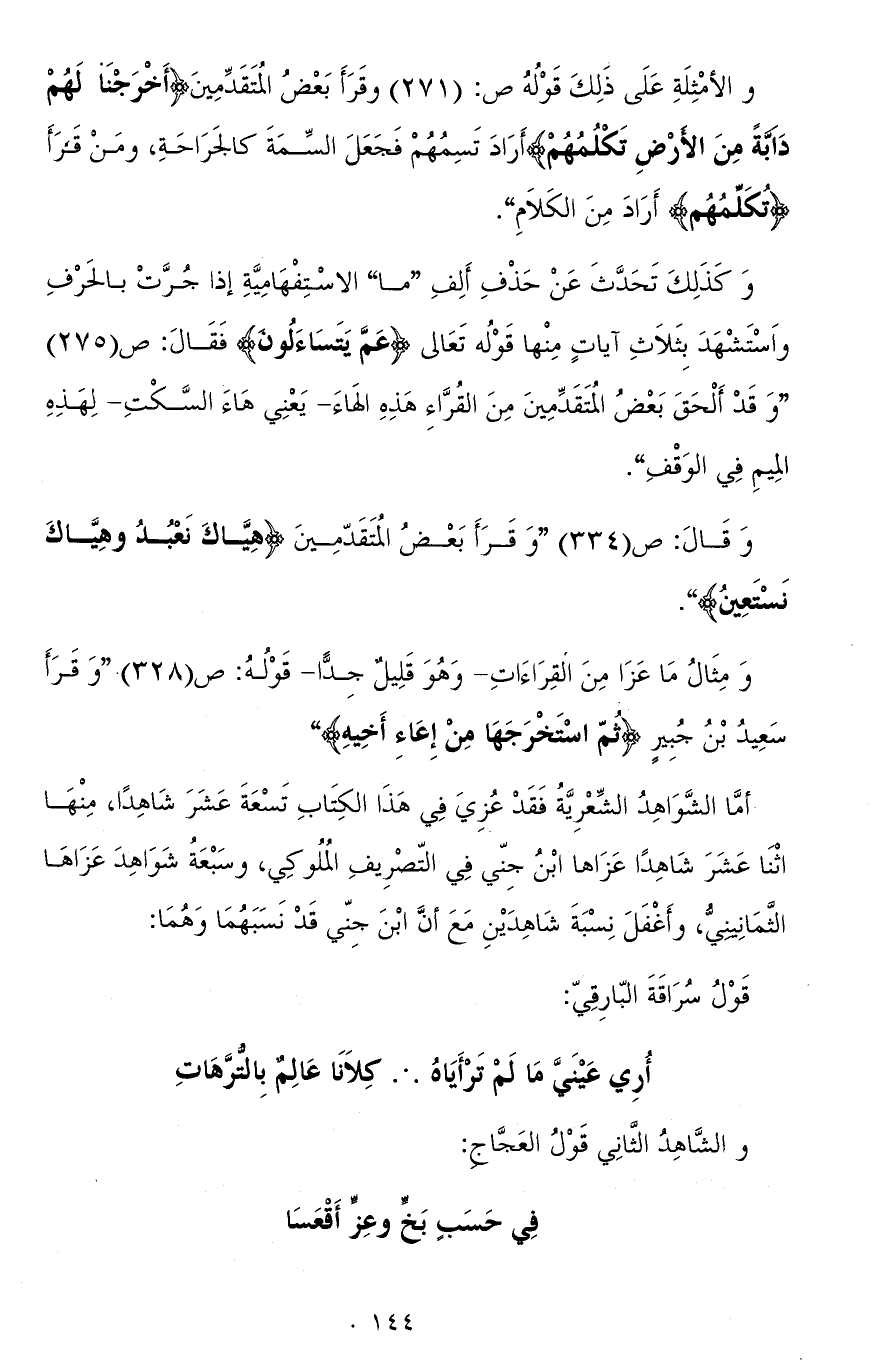 و الأمْثِلَةِ عَلَى ذَلِكَ قَوْلُهُ ص: (٢٧١) وقَرَأَ بَعْضُ المُتَقَدِّمِينَ﴿أَخْرَجْنَا لَهُمْ
دَابَّةً مِنَ الأَرْضِ تَكْلُمُهُمْ﴾أَرَادَ تَسِمُهُمْ فَجَعَلَ السِّمَةَ كالجَرَاحَةِ، ومَنْ قَرَأَ
﴿تُكَلِّمُهُم﴾ أَرَادَ مِنَ الكَلاَمِ“.
وَ كَذَلِكَ تَحَدَّثَ عَنْ حَذْفِ أَلِفِ ”مـا“ الاسْتِفْهَامِيَّةِ إذا جُرَّتْ بـالحَرْفِ
واَسْتَشْهَدَ بِثَلاَثِ آياتٍ مِنْها قَوْلُه تَعَالى ﴿عَمَّ يَتَسَاءَلُونَ﴾ فَقَـالَ: ص(٢٧٥)
”وَ قَدْ أَلْحَقَ بَعْضُ المُتَقَدِّمِينَ مِنَ القُرَّاءِ هَذِهِ الهَاءَ- يَعْنِي هَاءَ السَّـكْتِ- لِهَـذِهِ
المِيمِ فِي الوَقْفِ“.
وَ قَـالَ: ص(٣٣٤) ”وَ قَـرَأَ بَعْـضُ المُتَقَدّمِــينَ ﴿هِيَّـاكَ نَعْبُـدُ وهِيَّـاكَ
نَسْتَعِينُ﴾“.
وَ مِثَالُ مَا عَزَا مِنَ القِرَاءَاتِ- وَهُوَ قَلِيلٌ جـدًّا- قَوْلُـهُ: ص(٣٢٨) ”وَ قَـرَأَ
سَعِيدُ بْنُ جُبِيرٍ ﴿ثُمّ اسْتَخْرَجَهَا مِنْ إِعَاءِ أَخِيهِ﴾“
أمَّا الشَّوَاهِدُ الشِّعْرِيَّةُ فَقَدْ عُزِيَ فِي هَذَا الكِتَابِ تَسْعَةَ عَشَرَ شَاهِدًا، مِنْهَـا
اثْنَا عَشَرَ شَاهِدًا عَزَاها ابْنُ جنّي فِي التّصْرِيفِ المُلُوكِي، وسَبْعَةُ شَوَاهِدَ عَزَاهَـا
الثَّمَانِينِيُّ، وأَغْفَلَ نِسْبَةَ شاهِدَيْنِ مَعَ أنَّ ابْنَ جنّي قَدْ نَسَبَهُمَا وَهُمَا:
قَوْلُ سُرَاقَةَ البّارِقِيّ:
أُرِي عَيْنَيَّ مَا لَمْ تَرْأَيَاهُ .·. كِلاَنَا عَالِمٌ بِالتُّرَّهَاتِ
و الشَّاهِدُ الثَّانِي قَوْلُ العَجَّاجِ:
فِي حَسَبٍ بَخٍّ وعِزٍّ أَقْعَسَا
١٤٤ .